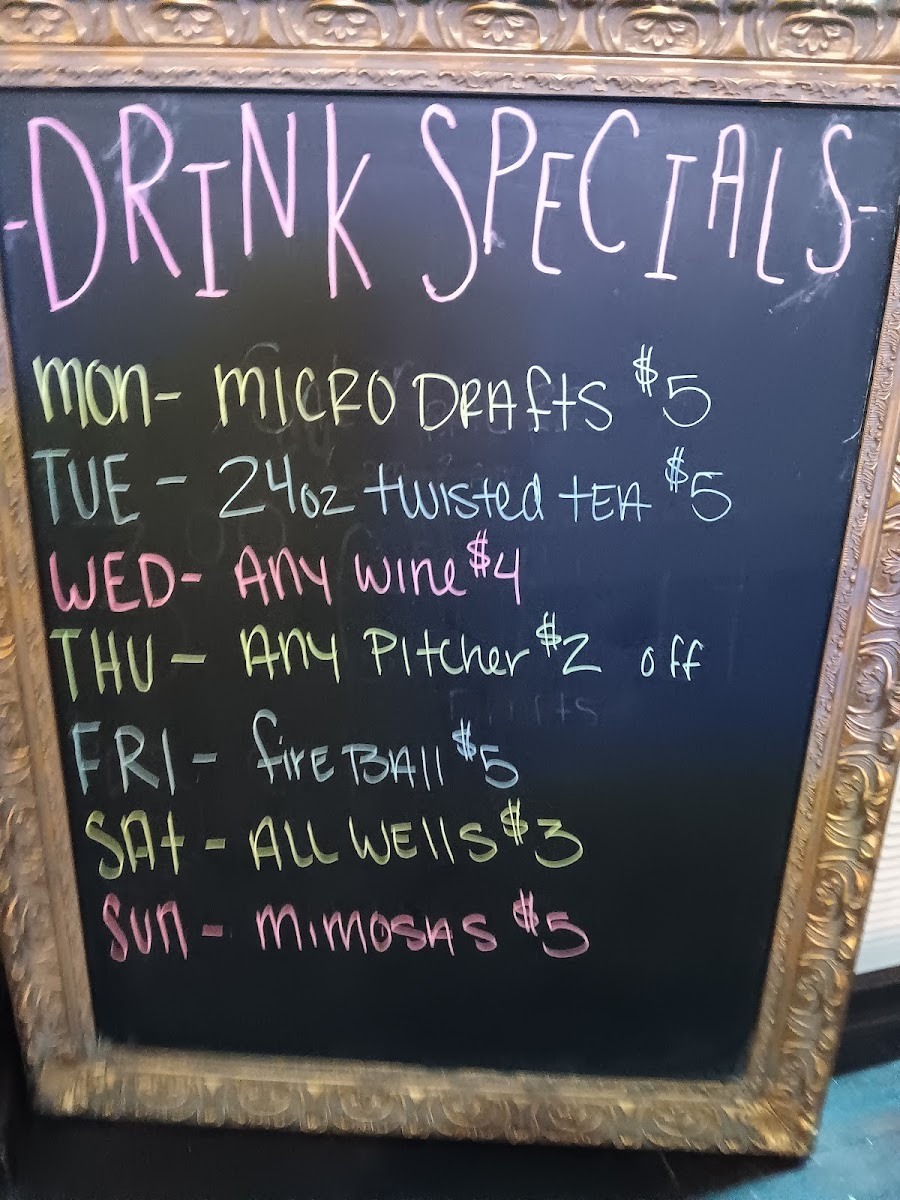 -DRINK SPECIALS-
MON- MICRO DRAftS $5
TUE - 24oz twisted tEA $5
WED- Any wine $4
THU - Any Pitcher $2 off
FRI - fireBAll $5
SAt - ALL WEllS $3
SUN - MiMOSAS $5